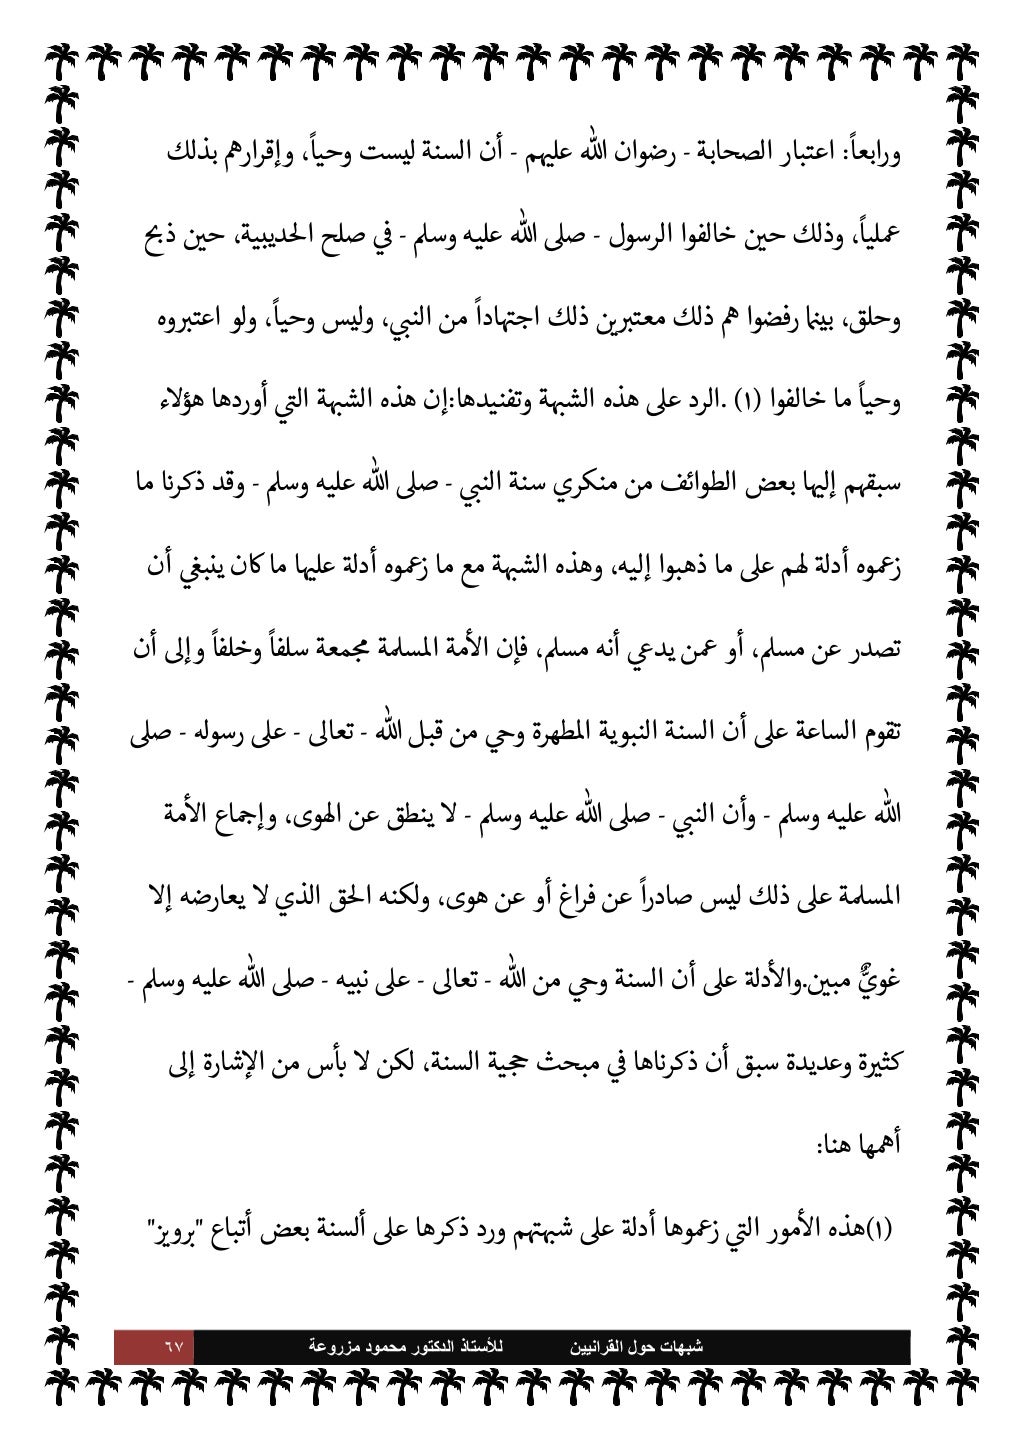 ورابعاً: اعتبار الصحابة - رضوان الله عليهم - أن السنة ليست وحياً، وإقرارهم بذلك
عملياً، وذلك حين خالفوا الرسول - صلى الله عليه وسلم - في صلح الحديبية، حين ذبح
وحلق، بينما رفضوا هم ذلك معتبرين ذلك اجتهاداً من النبي، وليس وحياً، ولو اعتبروه
وحياً ما خالفوا (١) .الرد على هذه الشبهة وتفنيدها:إن هذه الشبهة التي أوردها هؤلاء
سبقهم إليها بعض الطوائف من منكري سنة النبي - صلى الله عليه وسلم - وقد ذكرنا ما
زعموه أدلة لهم على ما ذهبوا إليه، وهذه الشبهة مع ما زعموه أدلة عليها ما كان ينبغي أن
تصدر عن مسلم، أو عمن يدعي أنه مسلم، فإن الأمة المسلمة مجمعة سلفاً وخلفاً وإلى أن
تقوم الساعة على أن السنة النبوية المطهرة وحي من قبل الله - تعالى - على رسوله - صلى
الله عليه وسلم - وأن النبي - صلى الله عليه وسلم - لا ينطق عن الهوى، وإجماع الأمة
المسلمة على ذلك ليس صادراً عن فراغ أو عن هوى، ولكنه الحق الذي لا يعارضه إلا
غويٌّ مبين.والأدلة على أن السنة وحي من الله - تعالى - على نبيه - صلى الله عليه وسلم -
كثيرة وعديدة سبق أن ذكرناها في مبحث حجية السنة، لكن لا بأس من الإشارة إلى
أهمها هنا:
(١)هذه الأمور التي زعموها أدلة على شبهتهم ورد ذكرها على ألسنة بعض أتباع "برويز"
شبهات حول القرانيين للأستاذ الدكتور محمود مزروعة ٦٧